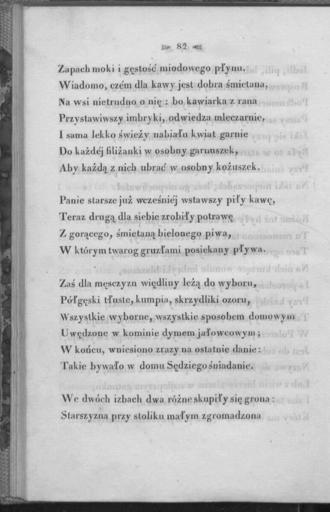 82
Zapach moki i gęstość miodowego płynu.
Wiadomo, czém dla kawy jest dobra śmietana,
Na wsi nietrudno o nię : bo kawiarka z rana
Przystawiwszy imbryki, odwiedza mleczarnie,
I sama lekko świeży nabiału kwiat garnie
Do każdéj filiżanki w osobny garnuszek,
Aby każdą z nich ubrać w osobny kożuszek.
Panie starsze już wcześniéj wstawszy piły kawę,
Teraz drugą dla siebie zrobiły potrawę
Z gorącego, śmietaną bielonego piwa,
W którym twarog gruzłami posiekany pływa.
Zaś dla męsczyzn więdliny leżą do wyboru,
Półgęski tłuste, kumpia, skrzydliki ozoru,
Wszystkie wyborne, wszystkie sposobem domowym
Uwędzone w kominie dymem jałowcowym;
W końcu, wniesiono zrazy na ostatnie danie:
Takie bywało w domu Sędziego śniadanie.
We dwóch izbach dwa różne skupiły się grona:
Starszyzna przy stoliku małym zgromadzona